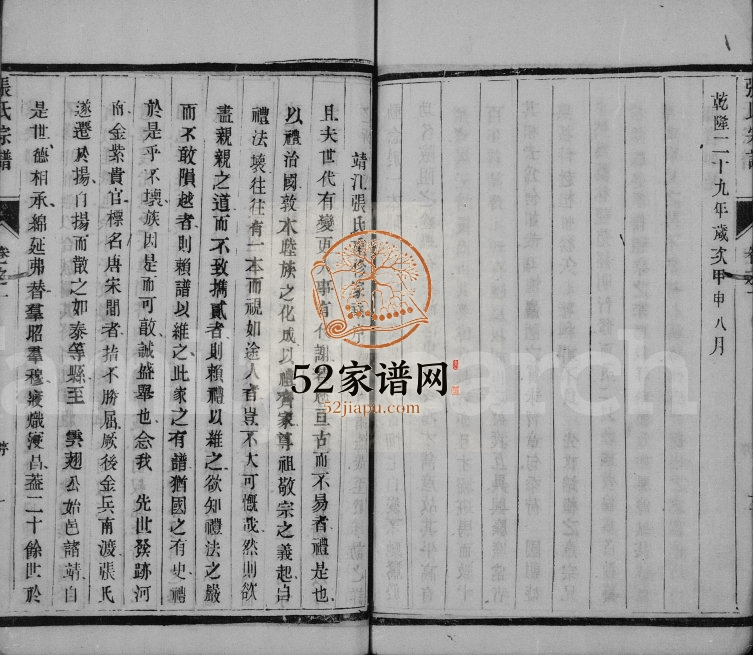 乾隆二十九年歲次甲申八月
靖江張氏
且夫世代有變更人事有代謝亘古而不易者禮是也
以禮治國敦木睦族之化成以禮齊家尊祖敬宗之義起自
禮法壞往往有一本而視如途人者豈不大可慨哉然則欲
盡親親之道而不致攜貳者則賴禮以維之欲知禮法之嚴
而不敢隕越者則賴譜以維之此家之有譜猶國之有史禮
於是乎不壞族因是而可敢誠盛舉也念我 先世發跡河
南金紫貴官標名唐宋間者指不勝屈厥後金兵南渡張氏
遂遷於揚自揚而散之如泰等縣至 雲翅公始邑諸靖自
是世德相承綿延弗替羣昭羣穆寖熾寖昌葢二十餘世於
張氏宗譜
卷之一
序
一
52家谱网
52jiapu.com